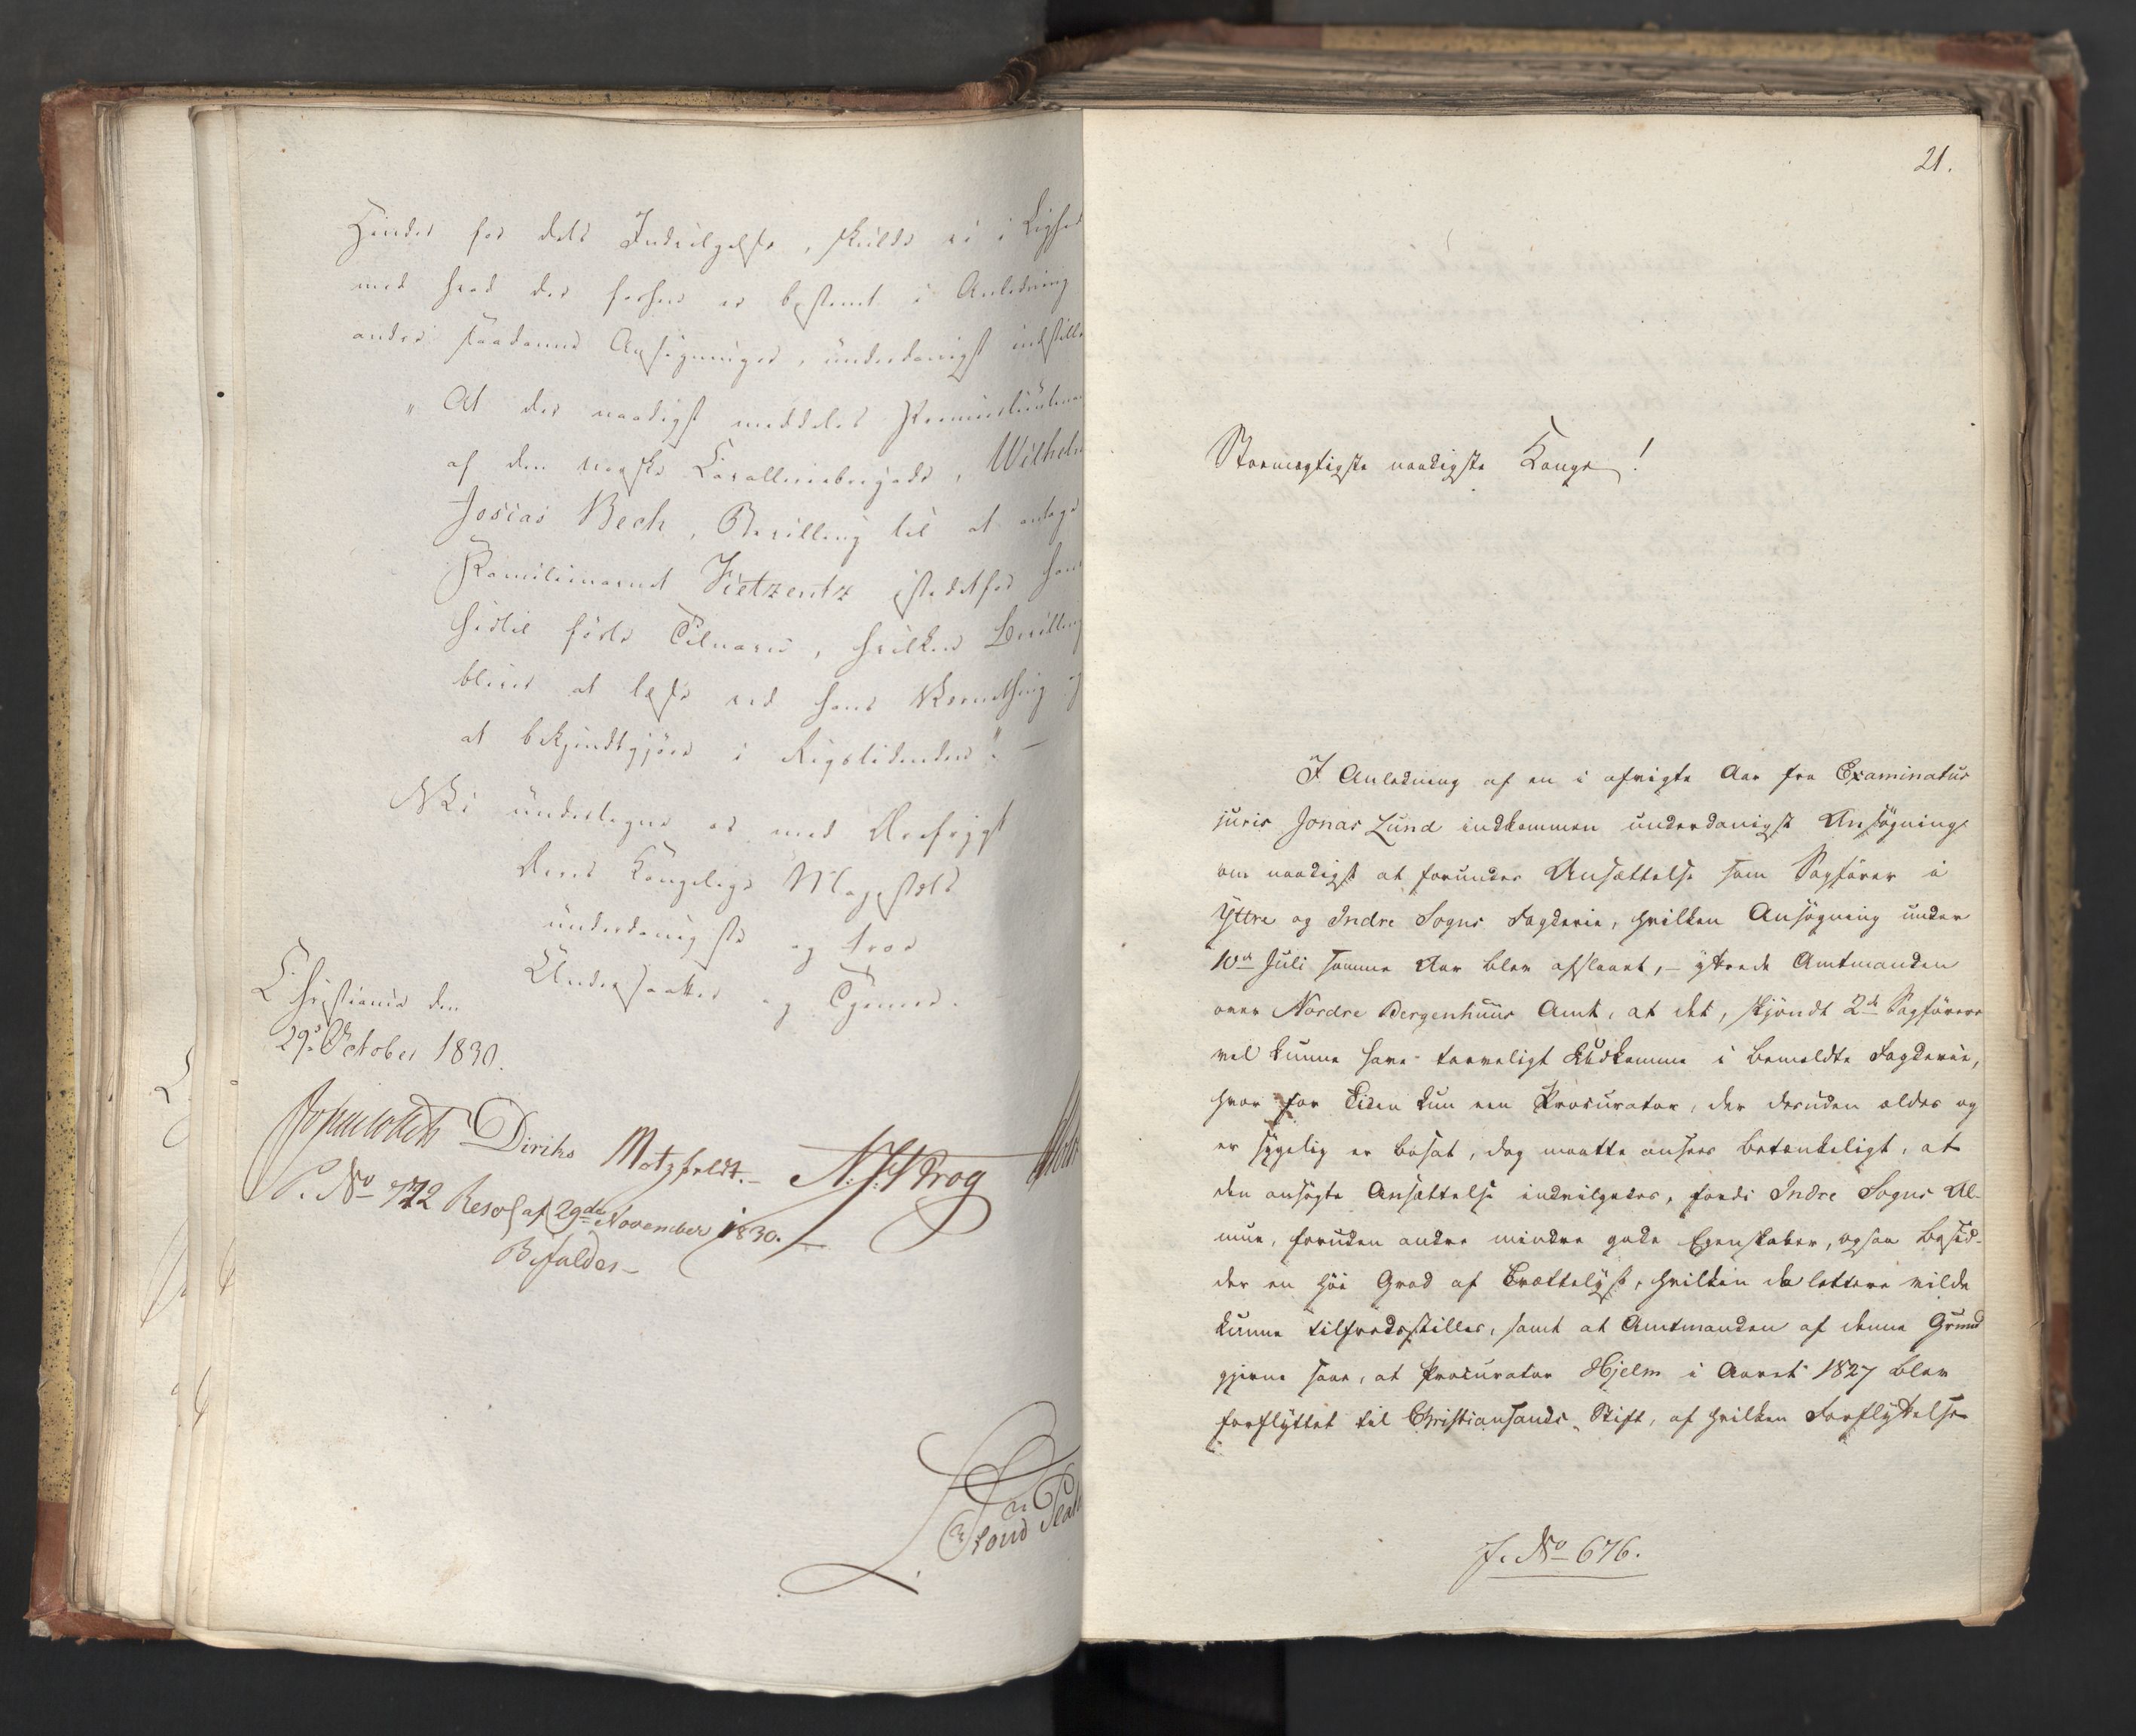 Hinder for dets Indvilgelse, skulde vi i Lighed
med hvad der forhen er bestemt i Anledning
andre saadanne Ansøgninger, underdanigst indstille
„At der naadigst meddeles Premierlieutenant
af den norske Cavalleriebrigade, Wilhelm
Josias Bech, Bevilling til at antage
Familienavnet Vietzentz istedetfor hans
hidtil førte Tilnavn, hvilken Bevilling
bliver at læse ved hans Værnething og
at bekjendtgjøre i Rigstidenden". –
Vi undertegne os med Ærefrygt
Deres Kongelige Majestæts
underdanigste og troe
Undersaatter og Tjenere.
Christiania den
29de October 1830.
Diriks Motzfeldt. – N. J. Krog
P. No 772 Resol. af 29de November 1830. –
Bifaldes –
21.
Stormægtigste naadigste Konge!
I Anledning af en i afvigte Aar fra Examinatus
juris Jonas Lund indkommen underdanigst Ansøgning
om naadigst at forundes Ansættelse som Sagfører i
Yttre og Indre Sogns Fogderie, hvilken Ansøgning under
10de Juli samme Aar blev afslaaet, – yttrede Amtmanden
over Nordre Bergenhuus Amt, at det, skjøndt 2de Sagførere
vel kunne have tarveligt Udkomme i bemeldte Fogderie,
hvor for Tiden kun een Procurator, der desuden ældes og
er sygelig er bosat, dog maatte ansees betænkeligt, at
den ansøgte Ansættelse indvilgedes, fordi Indre Sogns Al-
mue, foruden andre mindre gode Egenskaber, ogsaa besid-
der en høi Grad af Trættelyst, hvilken da lettere vilde
kunne tilfredsstilles, samt at Amtmanden af denne Grund
gjerne saae, at Procurator Hjelm i Aaret 1827 blev
forflyttet til Christiansands Stift, af hvilken Forflyttelse
J. No 676.